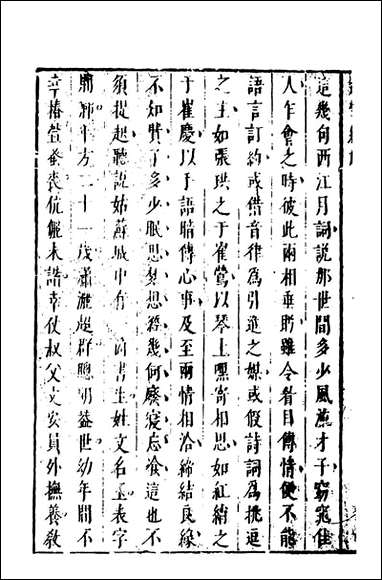 這幾句西江月詞說那世間多少風流才子窈窕佳
人乍會之時彼此兩相垂盻雖令眉目傳情便不能
語言訂約或借音律為引進之媒或假詩詞為挑逗
之主如張珙之于崔鶯以琴上默寄相思如紅綃之
于崔慶以手語暗傳心事及至兩情相洽締結良緣
不知費了多少眠思夢想經幾何廢寢忘飡這也不
須提起聽說姑蘇城中有個書生姓文名玉表字
荊卿年方二十一歲瀟灑超群聰明蓋世幼年間不
幸椿萱蚤喪伉儷未諧幸仗叔父文安員外撫養教